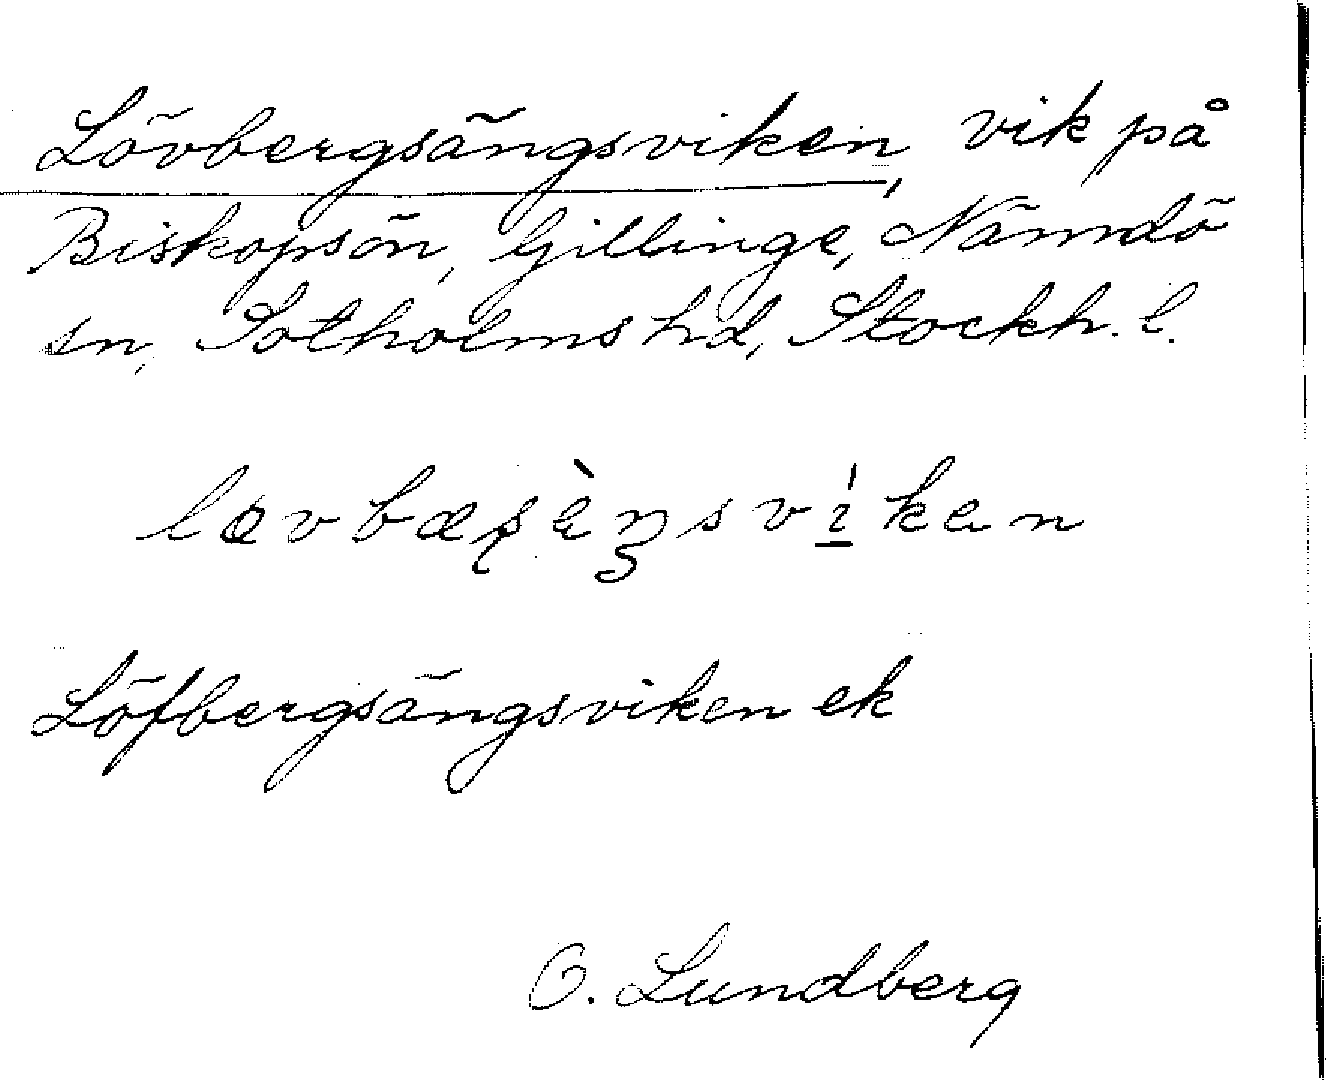 Lövbergsängsviken, vik på
Biskopsön, Gillinge, Nämdö
sn, Sotholms hd, Stockh. l.
Löfbergsängsviken ek
O. Lundberg